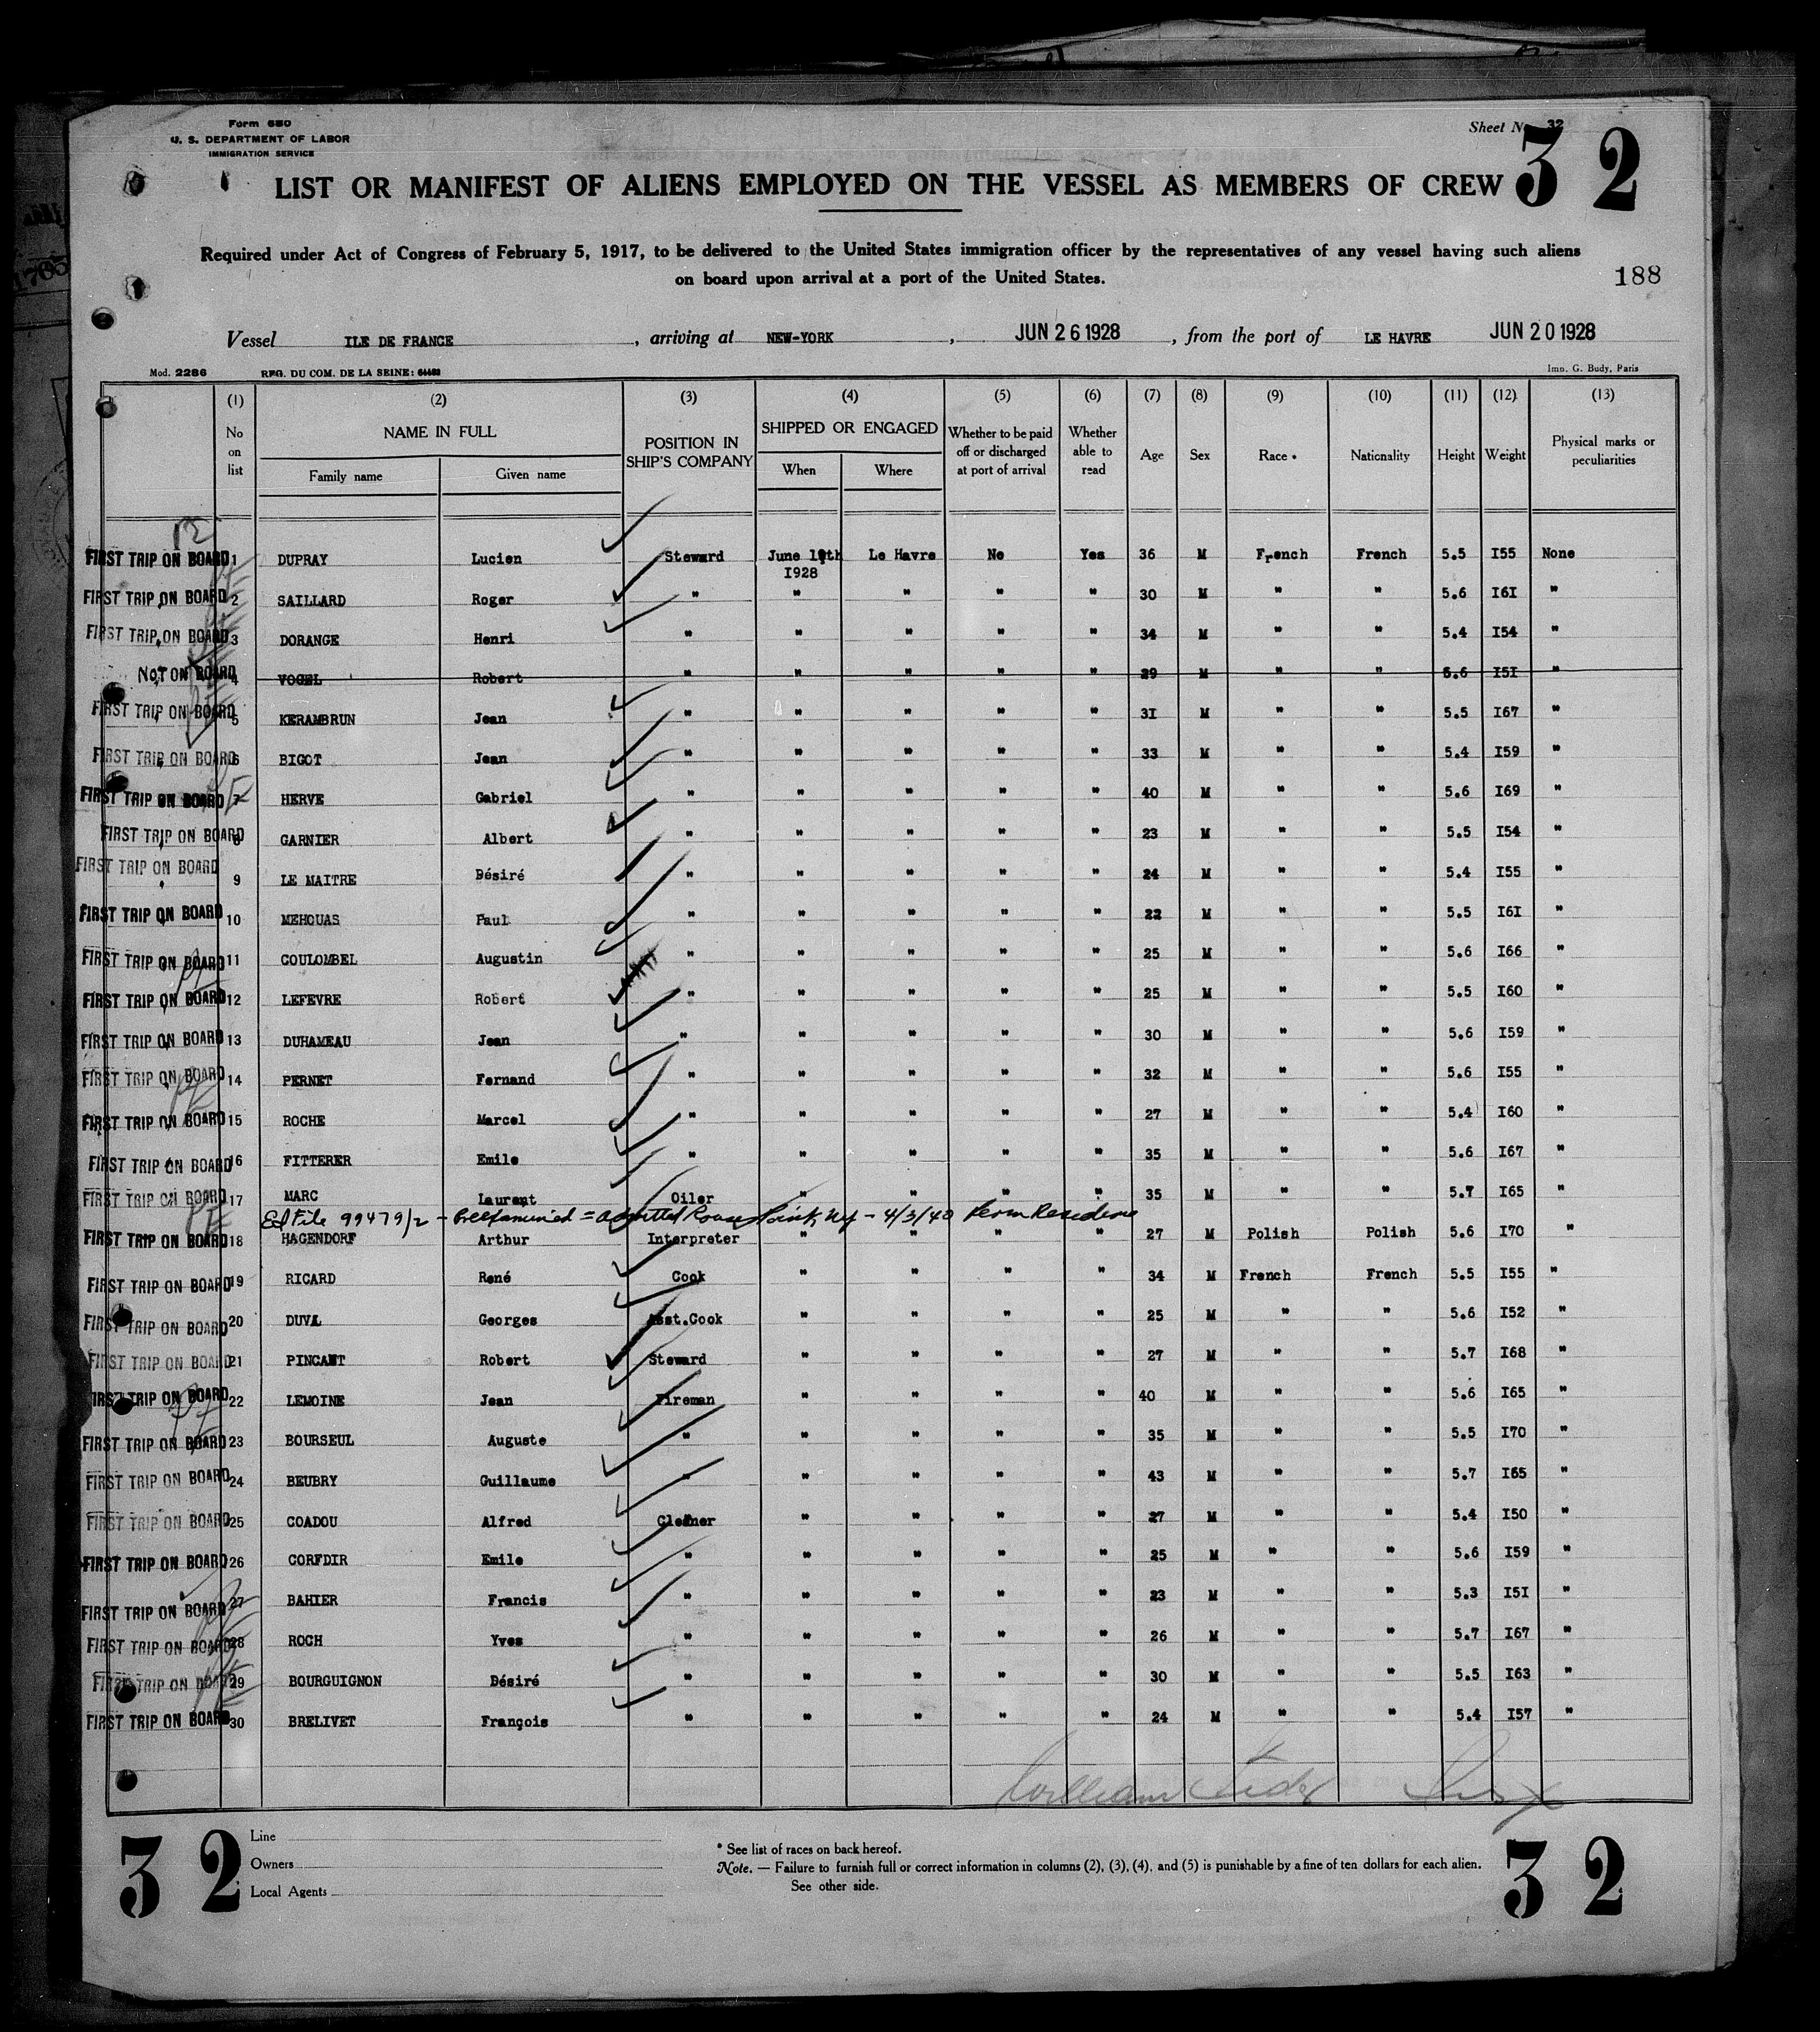 Form 680
U. S. DEPARTMENT OF LABOR
IMMIGRATION SERVICE
Sheet No. 32
32
LIST OR MANIFEST OF ALIENS EMPLOYED ON THE VESSEL AS MEMBERS OF CREW
Required under Act of Congress of February 5, 1917, to be delivered to the United States immigration officer by the representatives of any vessel having such aliens
on board upon arrival at a port of the United States.
188
Vessel ILE DE FRANCE, arriving at NEW-YORK, JUN 26 1928, from the port of LE HAVRE JUN 20 1928
Mod. 2286 REG. DU COM. DE LA SEINE: 64483 Imp. G. Budy, Paris
(1) (2) (3) (4) (5) (6) (7) (8) (9) (10) (11) (12) (13)
No on list NAME IN FULL Family name Given name POSITION IN SHIP'S COMPANY SHIPPED OR ENGAGED When Where Whether to be paid off or discharged at port of arrival Whether able to read Age Sex Race * Nationality Height Weight Physical marks or peculiarities
FIRST TRIP ON BOARD 1 DUPRAY Lucien Steward June 19th I928 Le Havre No Yes 36 M French French 5.5 I55 None
FIRST TRIP ON BOARD 2 SAILLARD Roger " " " " " 30 M " " 5.6 I6I "
FIRST TRIP ON BOARD 3 DORANGE Henri " " " " " 34 M " " 5.4 I54 "
NOT ON BOARD 4 VOGEL Robert " " " " " 29 M " " 5.6 I5I "
FIRST TRIP ON BOARD 5 KERAMBRUN Jean " " " " " 3I M " " 5.5 I67 "
FIRST TRIP ON BOARD 6 BIGOT Jean " " " " " 33 M " " 5.4 I59 "
FIRST TRIP ON BOARD 7 HERVE Gabriel " " " " " 40 M " " 5.6 I69 "
FIRST TRIP ON BOARD 8 GARNIER Albert " " " " " 23 M " " 5.5 I54 "
FIRST TRIP ON BOARD 9 LE MAITRE Désiré " " " " " 24 M " " 5.4 I55 "
FIRST TRIP ON BOARD 10 MEHOUAS Paul " " " " " 22 M " " 5.5 I6I "
FIRST TRIP ON BOARD 11 COULOMBEL Augustin " " " " " 25 M " " 5.6 I66 "
FIRST TRIP ON BOARD 12 LEFEVRE Robert " " " " " 25 M " " 5.5 I60 "
FIRST TRIP ON BOARD 13 DUHAMEAU Jean " " " " " 30 M " " 5.6 I59 "
FIRST TRIP ON BOARD 14 PERNET Fernand " " " " " 32 M " " 5.6 I55 "
FIRST TRIP ON BOARD 15 ROCHE Marcel " " " " " 27 M " " 5.4 I60 "
FIRST TRIP ON BOARD 16 FITTERER Emile " " " " " 35 M " " 5.6 I67 "
FIRST TRIP ON BOARD 17 MARC Laurent Oiler " " " " 35 M " " 5.7 I65 "
File 99479/2 - Preexamined = admitted Rouses Point, NY - 4/3/40 Perm Residence
FIRST TRIP ON BOARD 18 HAGENDORF Arthur Interpreter " " " " 27 M Polish Polish 5.6 I70 "
FIRST TRIP ON BOARD 19 RICARD René Cook " " " " 34 M French French 5.5 I55 "
FIRST TRIP ON BOARD 20 DUVAL Georges Asst.Cook " " " " 25 M " " 5.6 I52 "
FIRST TRIP ON BOARD 21 PINCANT Robert Steward " " " " 27 M " " 5.7 I68 "
FIRST TRIP ON BOARD 22 LEMOINE Jean Fireman " " " " 40 M " " 5.6 I65 "
FIRST TRIP ON BOARD 23 BOURSEUL Auguste " " " " " 35 M " " 5.5 I70 "
FIRST TRIP ON BOARD 24 BEUBRY Guillaume " " " " " 43 M " " 5.7 I65 "
FIRST TRIP ON BOARD 25 COADOU Alfred Cleaner " " " " 27 M " " 5.4 I50 "
FIRST TRIP ON BOARD 26 CORFDIR Emile " " " " " 25 M " " 5.6 I59 "
FIRST TRIP ON BOARD 27 BAHIER Francis " " " " " 23 M " " 5.3 I5I "
FIRST TRIP ON BOARD 28 ROCH Yves " " " " " 26 M " " 5.7 I67 "
FIRST TRIP ON BOARD 29 BOURGUIGNON Désiré " " " " " 30 M " " 5.5 I63 "
FIRST TRIP ON BOARD 30 BRELIVET François " " " " " 24 M " " 5.4 I57 "
William
32
Line
Owners
Local Agents
* See list of races on back hereof.
Note. — Failure to furnish full or correct information in columns (2), (3), (4), and (5) is punishable by a fine of ten dollars for each alien.
See other side.
32